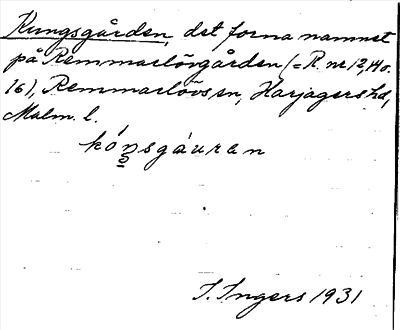 Kungsgården, det forna namnet
på Remmarlövgården (= R. nr 12, 14 o.
16), Remmarlövs sn, Harjagers hd,
Malm. l.
kóŋsgáuran
I. Ingers 1931